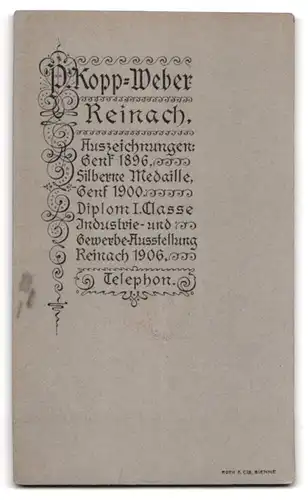 P. Kopp-Weber
Reinach.
Auszeichnungen:
Genf 1896.
Silberne Medaille,
Genf 1900.
Diplom I. Classe
Industrie- und
Gewerbe-Ausstellung
Reinach 1906.
Telephon.
ROTH & CIE, BIENNE